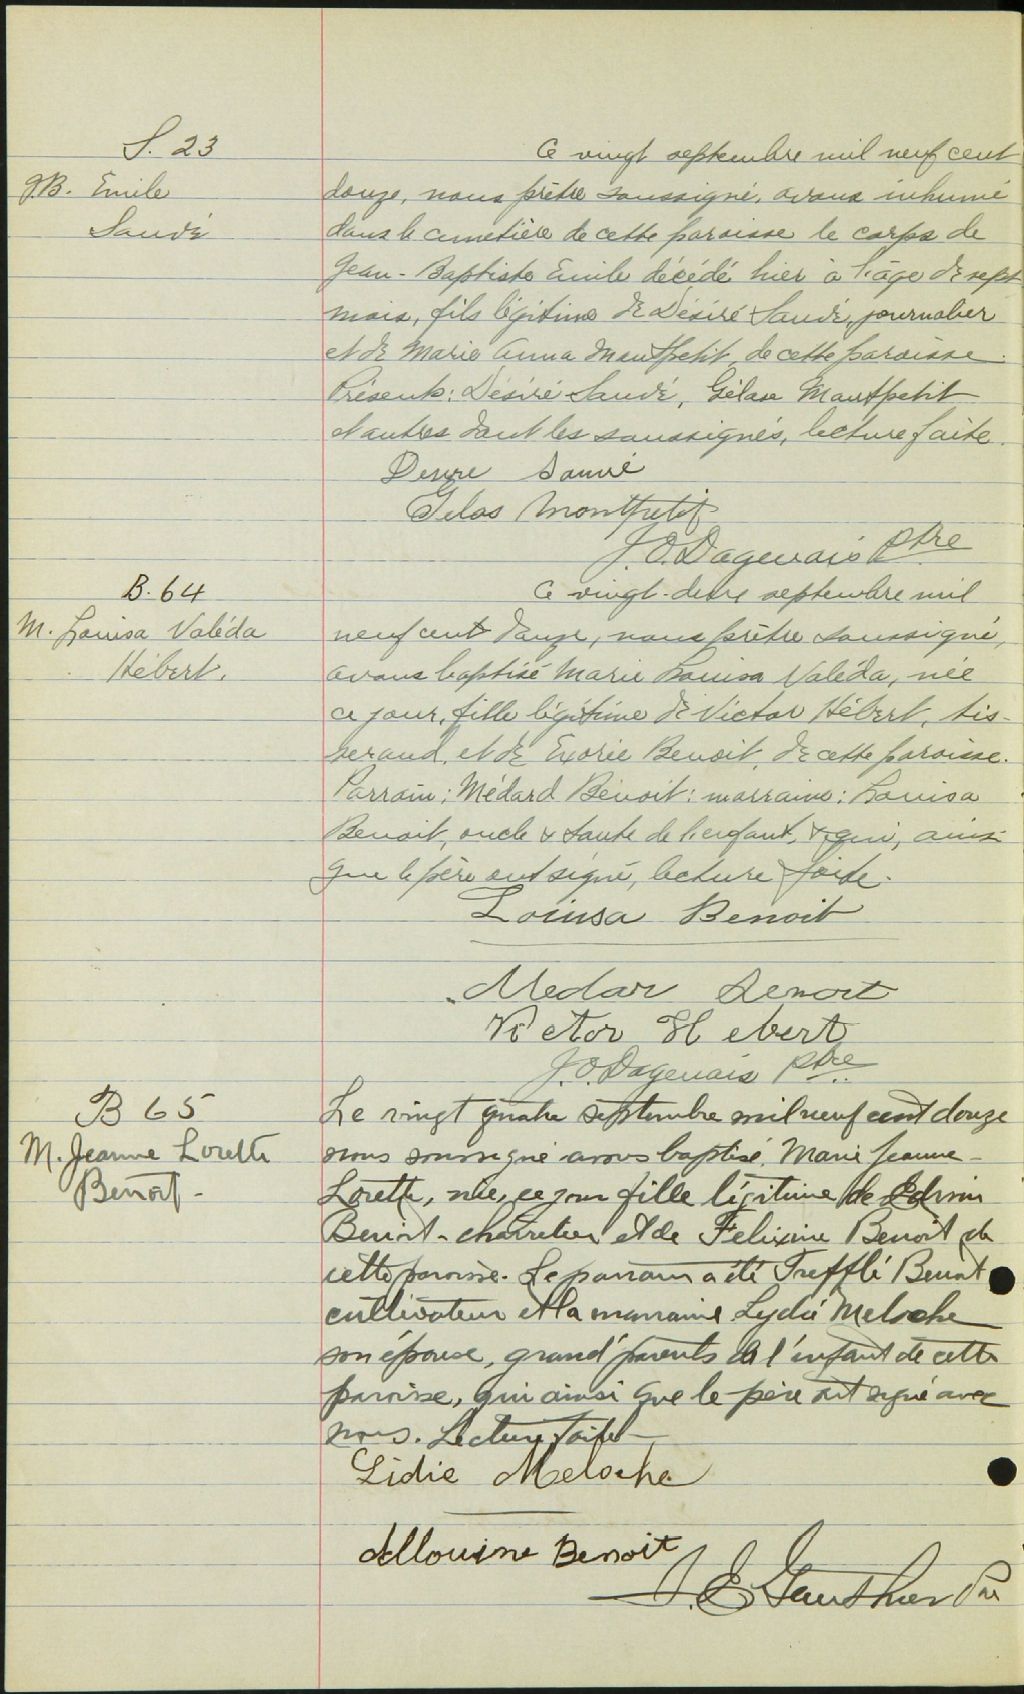 S. 23
J.B. Emile
Sauvé
Ce vingt septembre mil neuf cent
douze, nous prêtre soussigné, avons inhumé
dans le cimetière de cette paroisse le corps de
Jean-Baptiste Emile décédé hier à l'âge de sept
mois, fils légitime de Désiré Sauvé, journalier
et de Marie Anna Montpetit, de cette paroisse.
Présents: Désiré Sauvé, Gélase Montpetit
et autres dont les soussignés, lecture faite.
Desire Sauvé
Gelas Montpetit
J.O. Dagenais Ptre
B. 64
M. Louisa Valéda
Hébert.
Ce vingt-deux septembre mil
neuf cent douze, nous prêtre soussigné,
avons baptisé Marie Louisa Valéda, née
ce jour, fille légitime de Victor Hébert, tis-
serand, et de Exorée Benoit, de cette paroisse.
Parrain: Médard Benoit: marraine: Louisa
Benoit, oncle & tante de l'enfant, & qui, ainsi
que le père ont signé, lecture faite.
Louisa Benoit
Medar Benoit
Victor Hebert
J.O. Dagenais Ptre
B 65
M. Jeanne Lorette
Benoit-
Le vingt quatre septembre mil neuf cent douze
nous soussigné avons baptisé, Marie Jeanne-
Lorette, née, ce jour fille légitime de
Benoit-charretier et de Felixine Benoit de
cette paroisse. Le parrain a été Trefflé Benoit
cultivateur et la marraine Lydie Meloche
son épouse, grand'parents de l'enfant de cette
paroisse, qui ainsi que le père ont signé avec
nous. Lecture faite
Lidie Meloche
Benoit
J. E. Gauthier Ptre